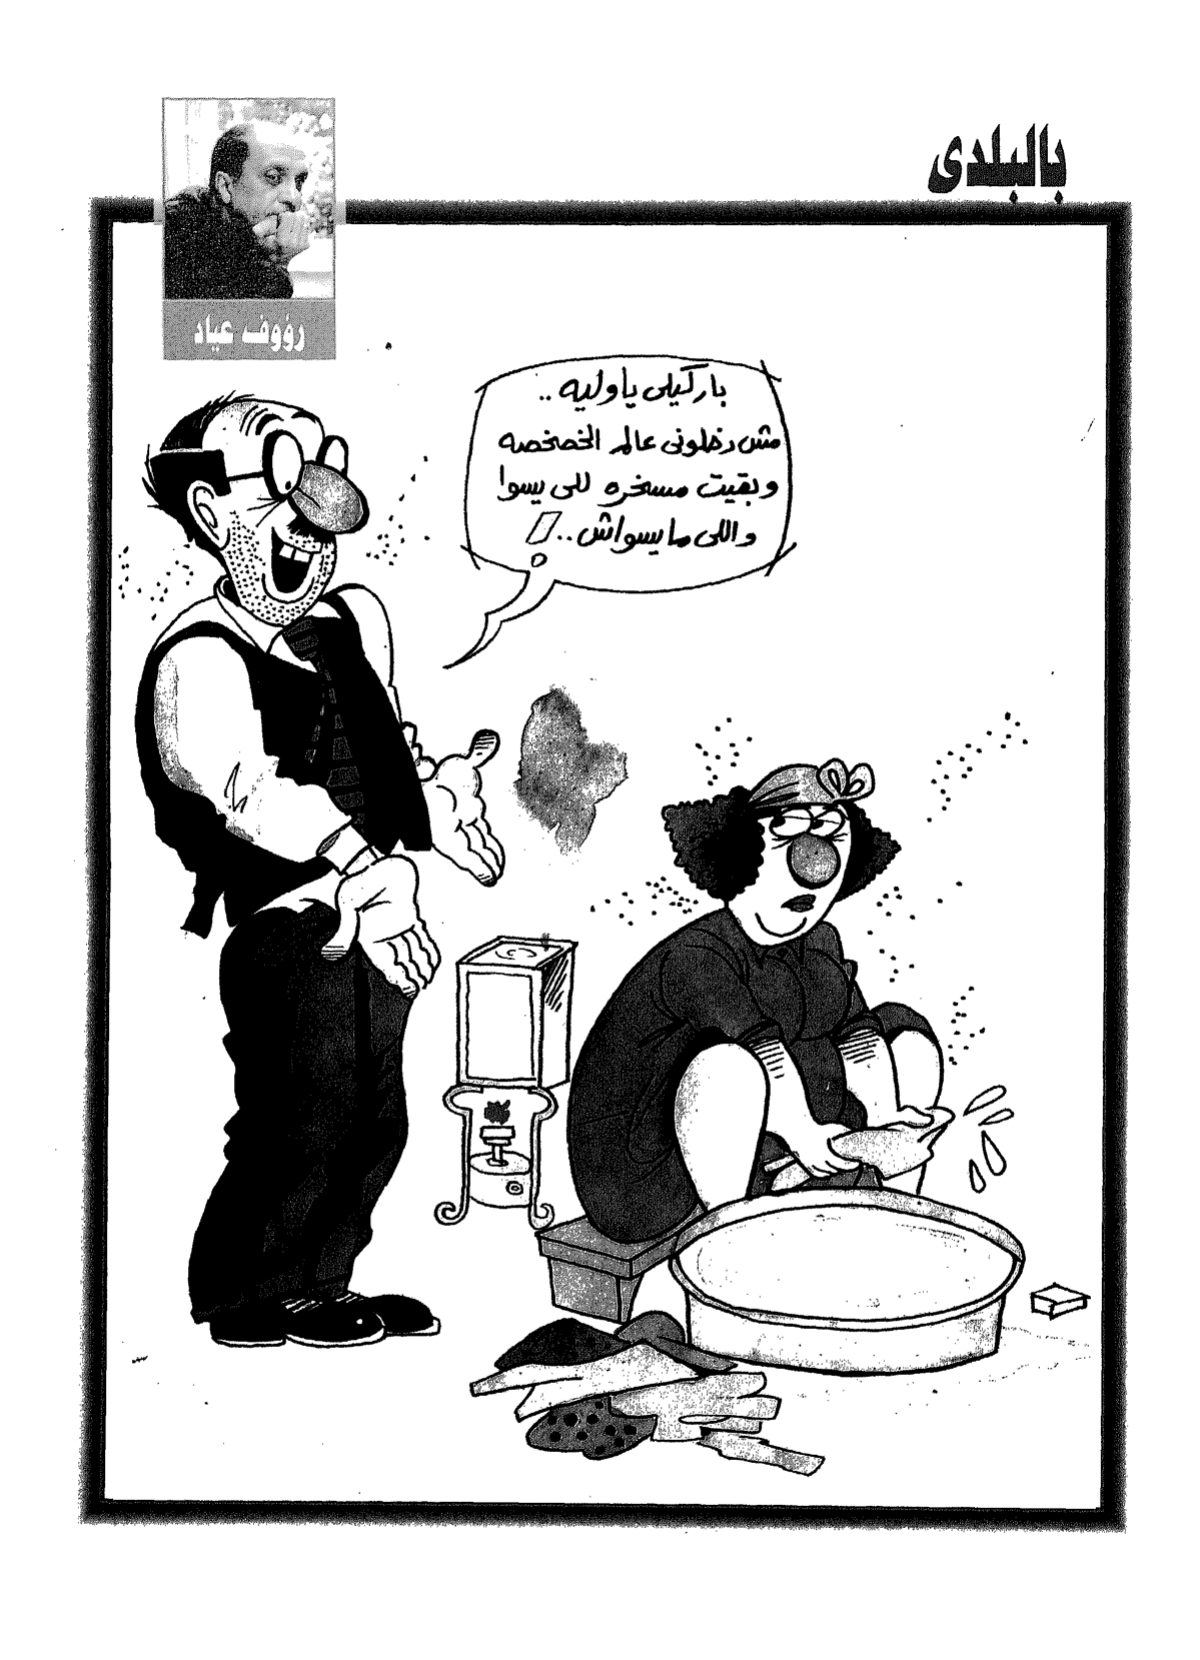 بالبلدى
رؤوف عياد
باركيلى ياوليه ..
مش دخلونى عالم الخصخصه
وبقيت مسخره للى يسوا
واللى مايسواش ..!